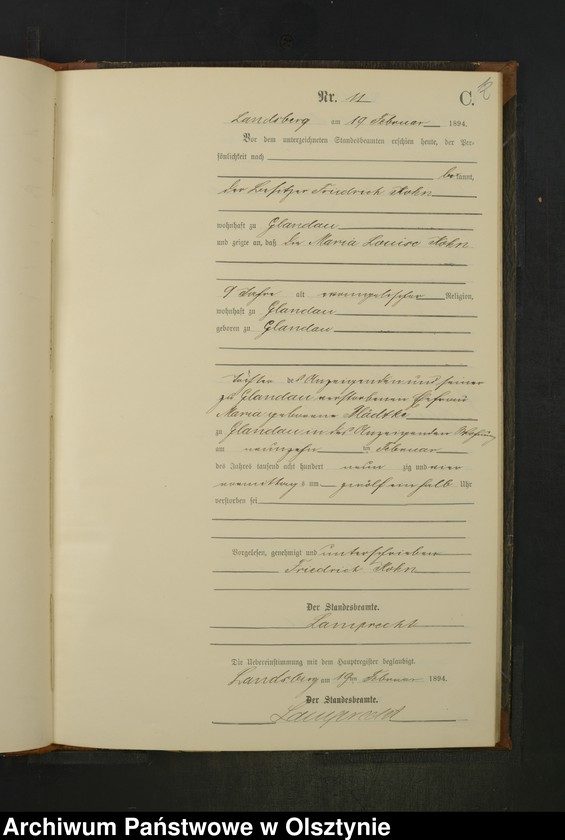 Nr. 11 C.
Landsberg am 19 Februar 1894.
Vor dem unterzeichneten Standesbeamten erschien heute, der Per-
sönlichkeit nach
bekannt,
der Besitzer Friedrich Kohn
wohnhaft zu Glandau
und zeigte an, daß die Maria Louise Kohn
9 Jahre alt evangelischer Religion,
wohnhaft zu Glandau
geboren zu Glandau
Tochter des Anzeigenden und seiner
zu Glandau verstorbenen Ehefrau
Maria geborene
zu Glandau in des Anzeigenden Wohnung
am neunzehn ten Februar
des Jahres tausend acht hundert neun zig und vier
vormittags um zwölf einhalb Uhr
verstorben sei
Vorgelesen, genehmigt und unterschrieben
Friedrich Kohn
Der Standesbeamte.
Lamprecht
Die Uebereinstimmung mit dem Hauptregister beglaubigt.
Landsberg am 19ten Februar 1894.
Der Standesbeamte.
Lamprecht
Archiwum Państwowe w Olsztynie